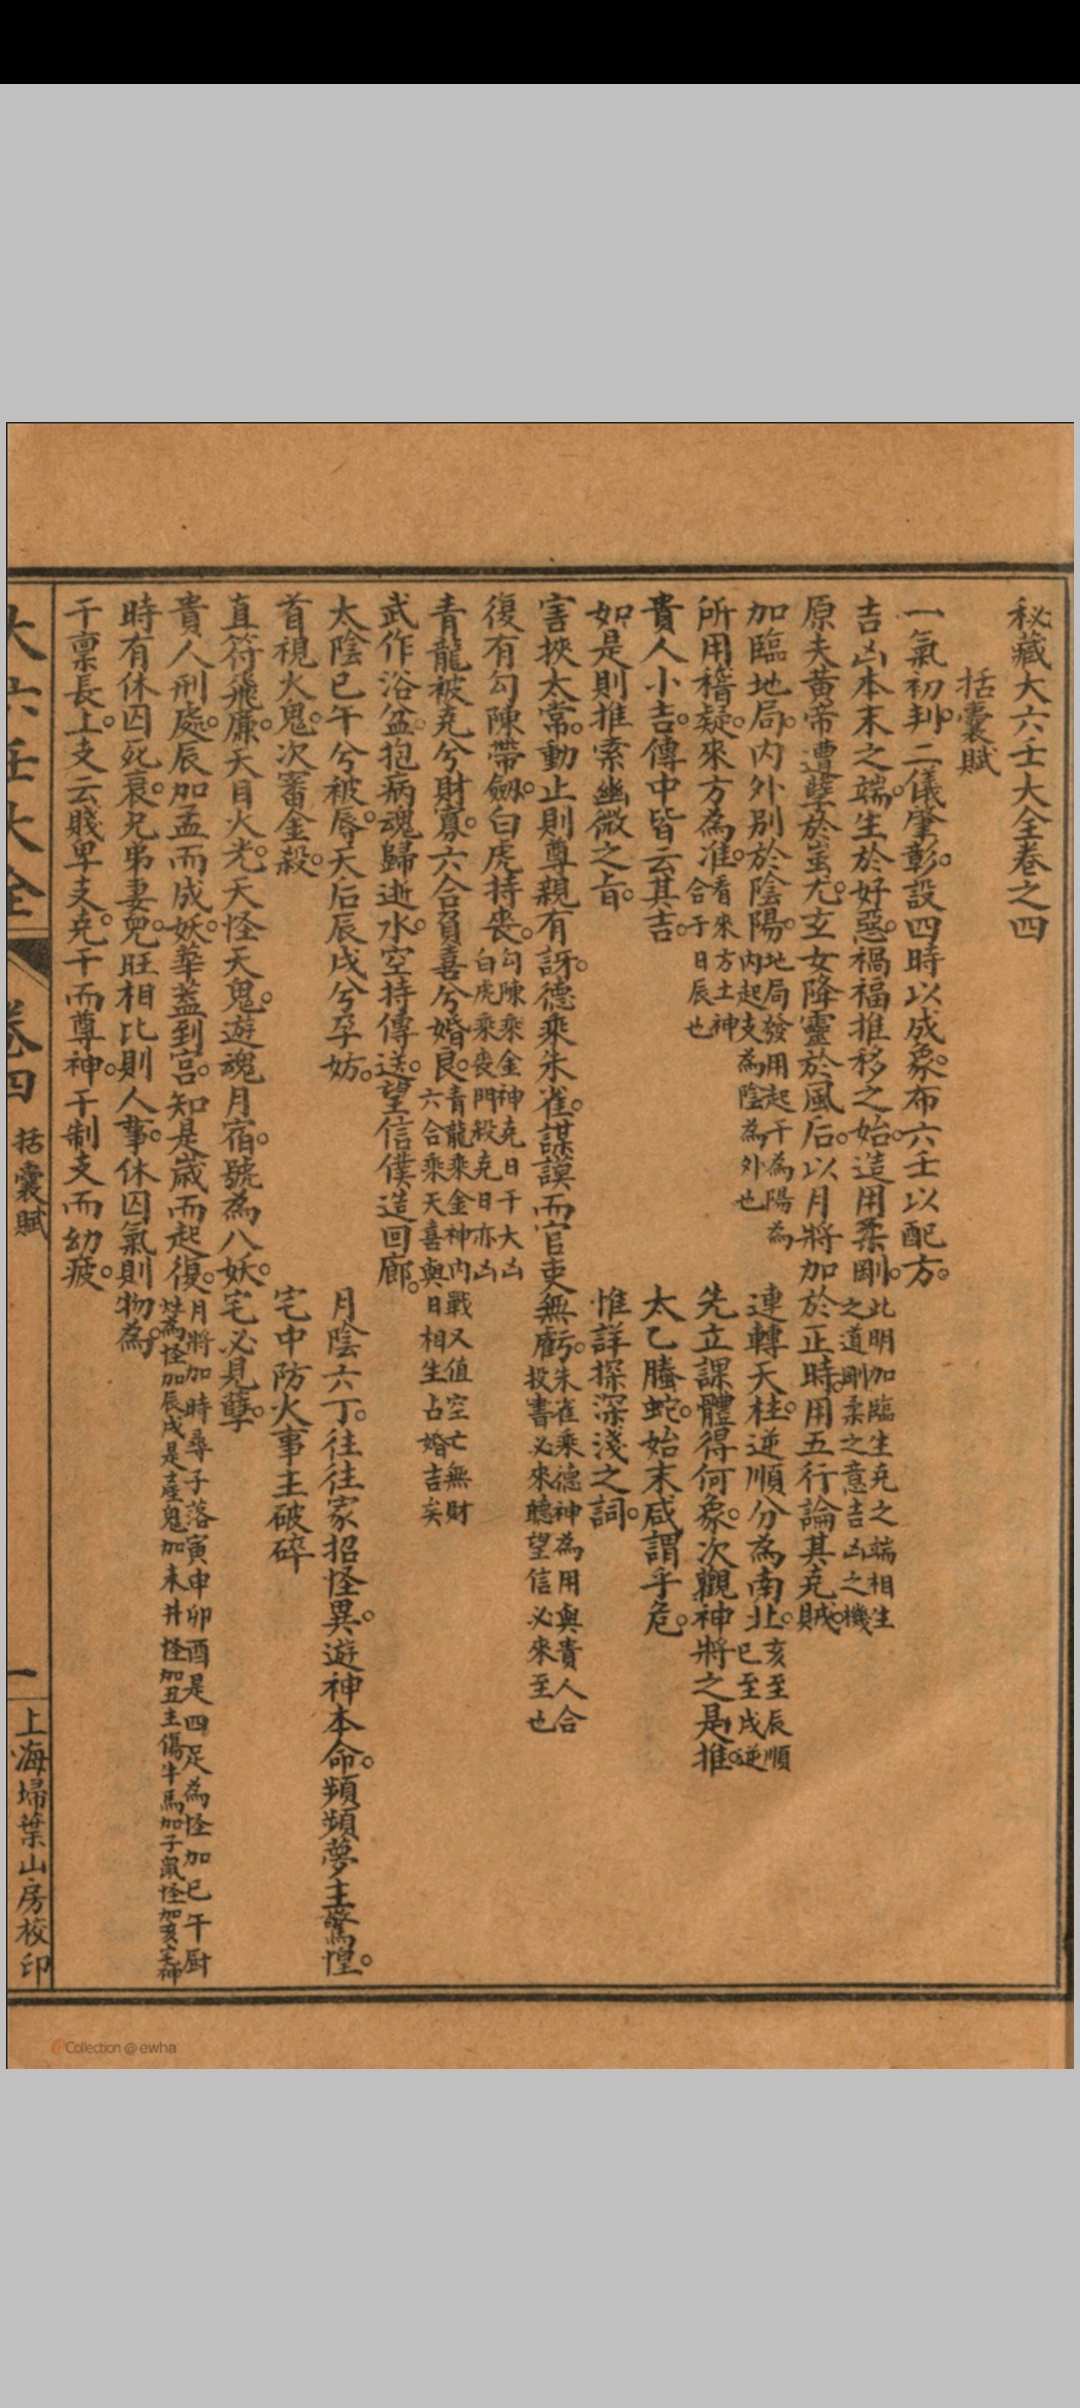 秘藏大六壬大全卷之四
括囊賦
一氣初判。二儀肇彰。設四時以成象。布六壬以配方。
吉凶本末之端。生於好惡。禍福推移之始。造用柔剛。此明加臨生克之端相生之道剛柔之意吉凶之機
原夫黃帝遭孽於蚩尤。玄女降靈於風后。以月將加於正時。用五行論其克賊。
加臨地局。內外別於陰陽。地局發用起干為陽為內起支為陰為外也連轉天桂。逆順分為南北。亥至辰順巳至戌逆
所用稽疑。來方為准。看來方土神合于日辰也先立課體得何象。次觀神將之是推。
貴人小吉。傳中皆云其吉。太乙螣蛇。始末咸謂乎危。
如是則推索幽微之旨。惟詳探深淺之詞。
害挾太常。動止則尊親有訝。德乘朱雀。謀謨而官吏無虧。朱雀乘德神為用與貴人合投書必來聽望信必來至也
復有勾陳帶劔。白虎持喪。勾陳乘金神克日干大凶白虎乘喪門殺克日亦凶
青龍被克兮財寡。六合負喜兮婚良。青龍乘金神內戰又值空亡無財六合乘天喜與日相生占婚吉矣
武作浴盆。抱病魂歸逝水。空持傳送。望信僕造回廊。
太陰巳午兮被辱。天后辰戌兮孕妨。月陰六丁。往往家招怪異。遊神本命。頻頻夢主驚惶。
首視火鬼。次審金殺。宅中防火事主破碎
直符飛廉。天目火光。天怪天鬼。遊魂月宿。號為八妖。宅必見孽。
貴人刑處。辰加孟而成妖。華蓋到宮。知是歲而起復。月將加時尋子落寅申卯酉是四足為怪加巳午厨灶為怪加辰戌是產鬼加未井怪加丑主傷牛馬加子鼠怪加亥宅神
時有休囚死衰。兄弟妻鬼。旺相比則人事。休囚氣則物為。
干禀長上。支云賤卑。支克干而尊神。干制支而幼疲。
大六壬大全
卷四
括囊賦
一
上海埽葉山房校印
eCollection @ ewha